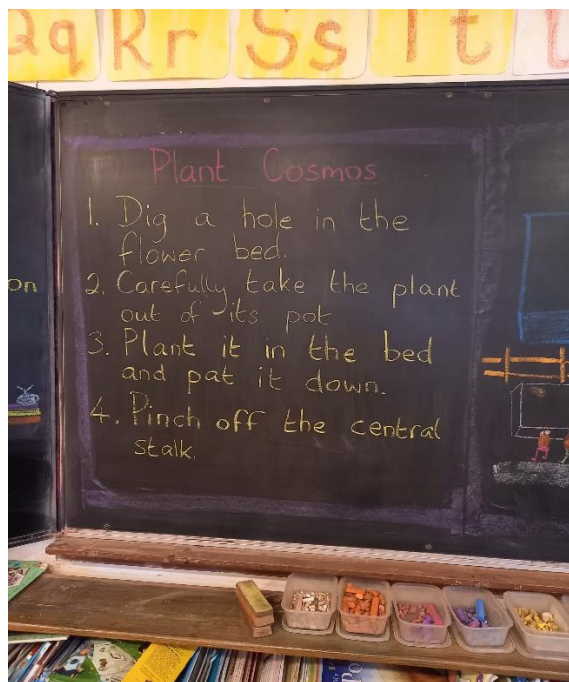 Qq Rr Ss Tt
Plant Cosmos
1. Dig a hole in the
flower bed.
2. Carefully take the plant
out of its pot
3. Plant it in the bed
and pat it down.
4. Pinch off the central
stalk.
on